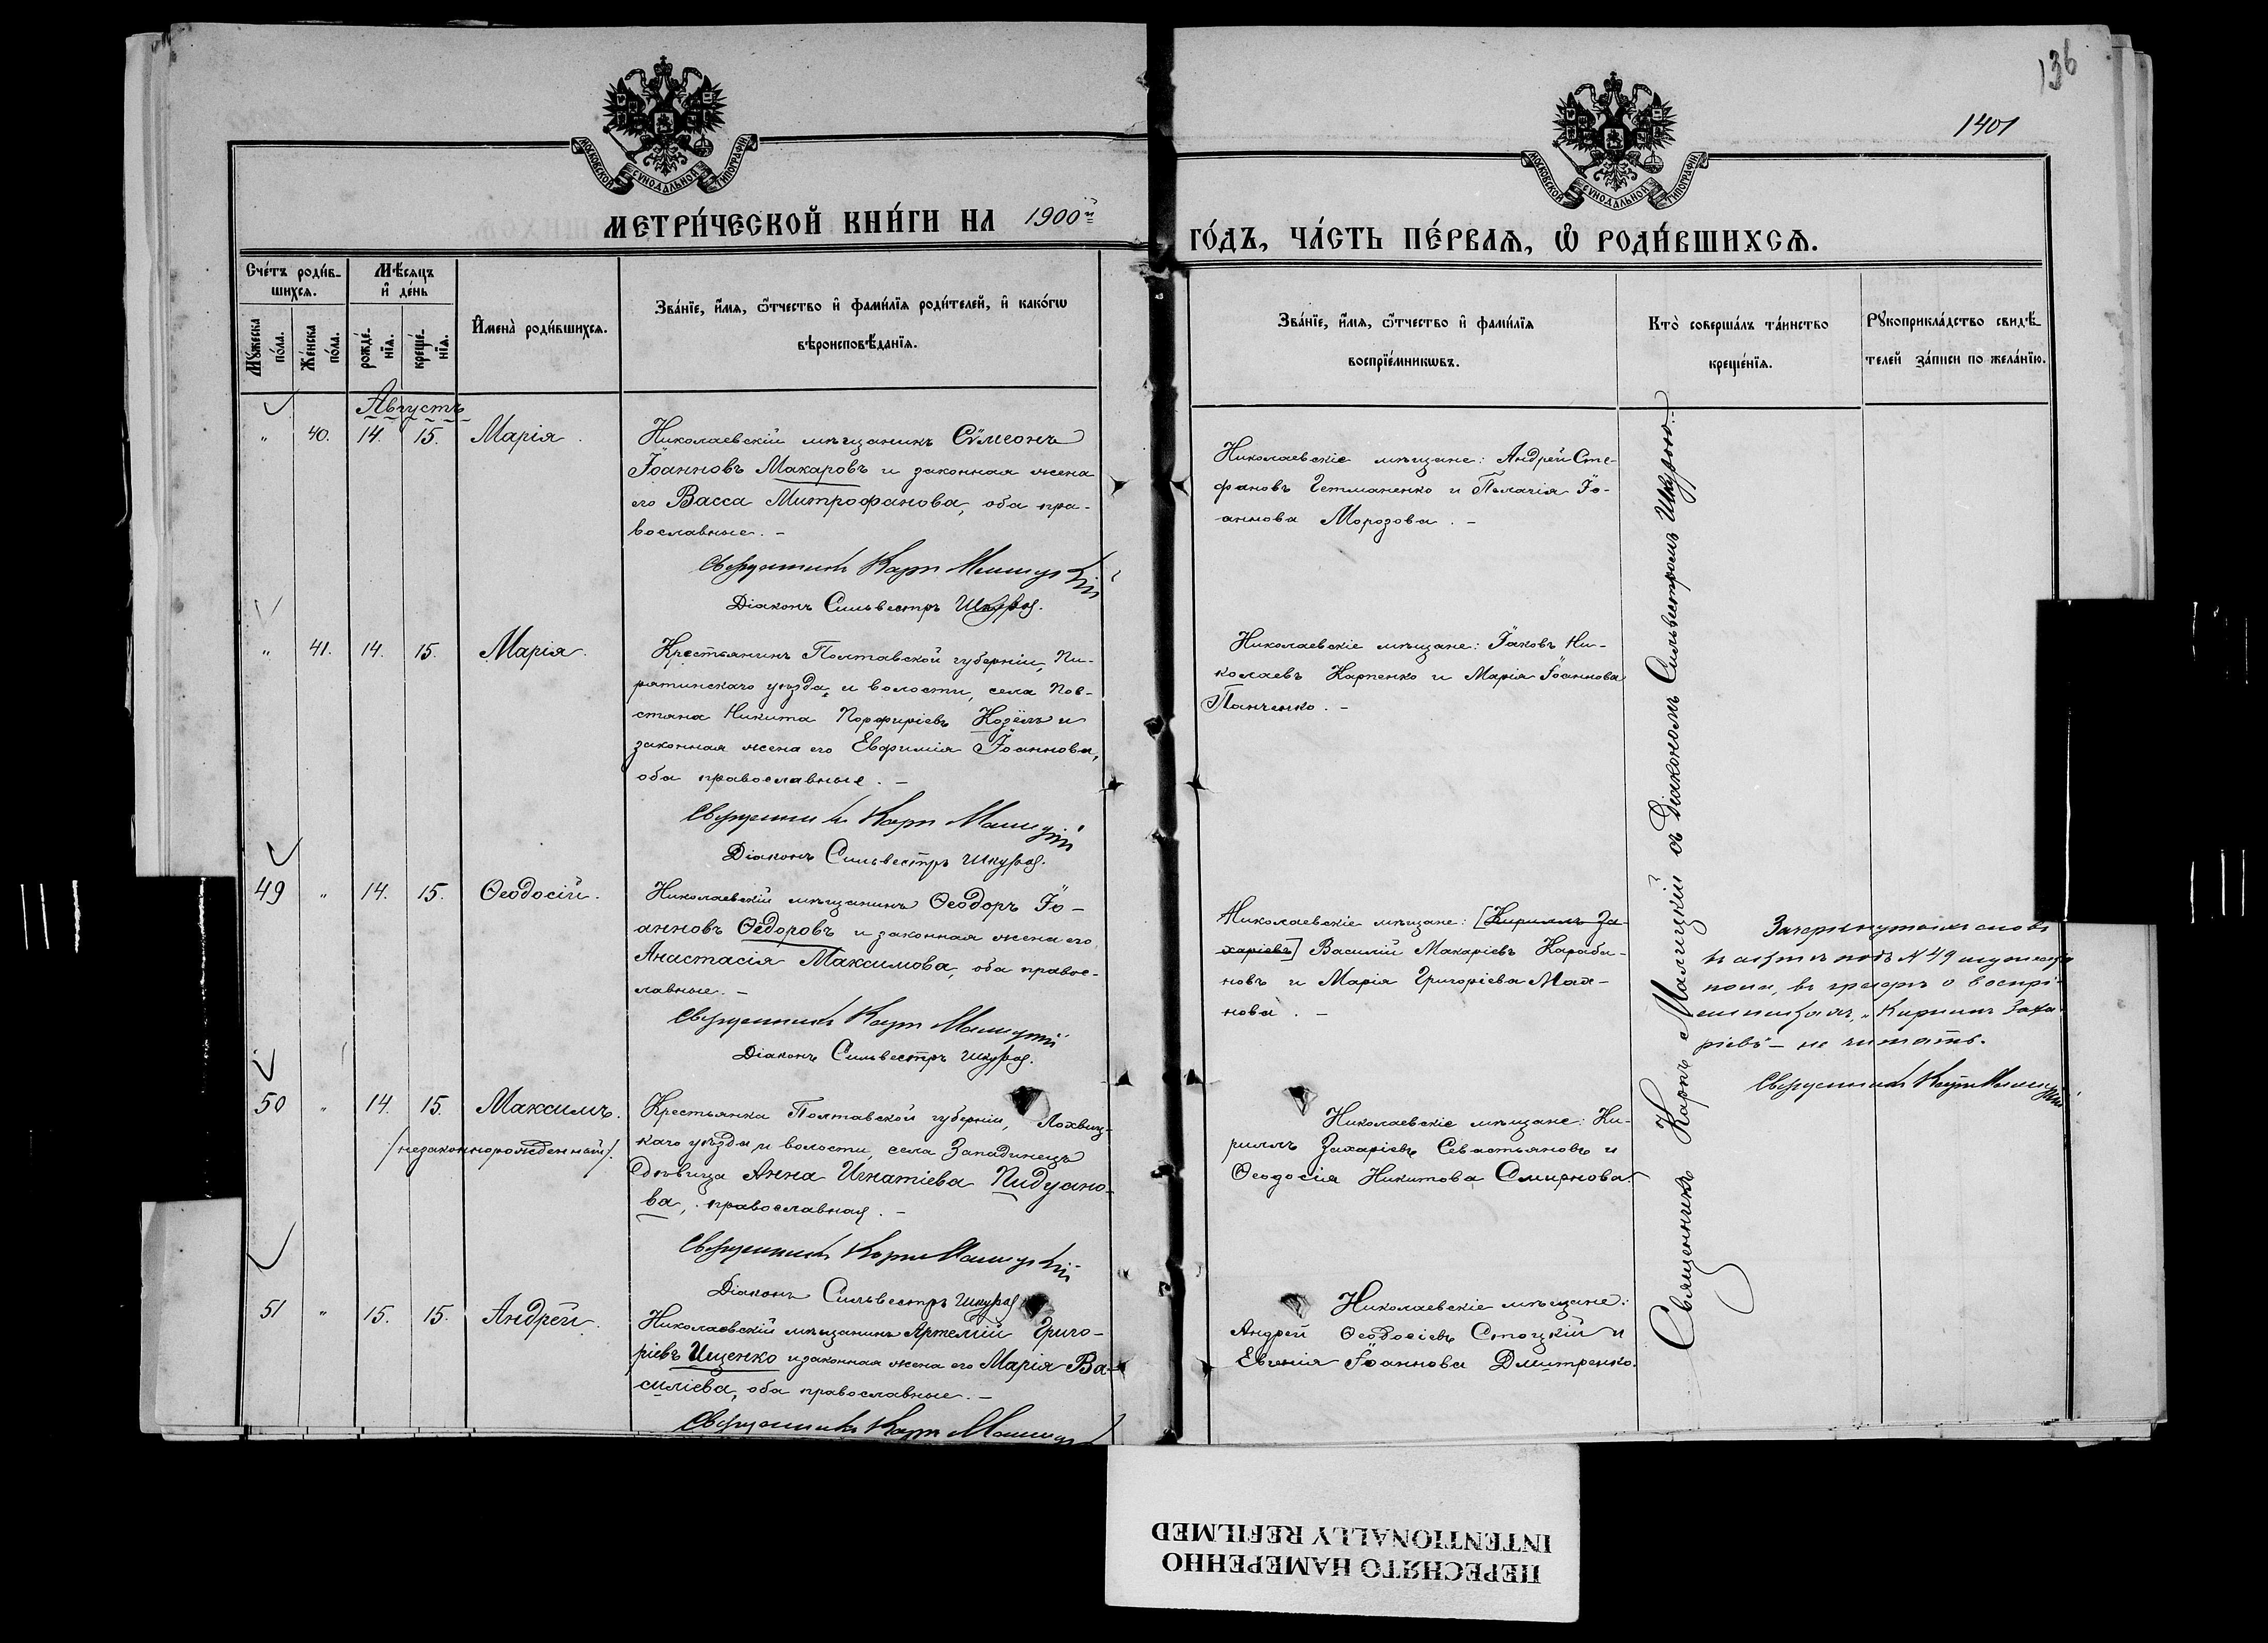 136
1401
МОСКОВСКОЙ СѴНОДАЛЬНОЙ ТИПОГРАФІИ
МОСКОВСКОЙ СѴНОДАЛЬНОЙ ТИПОГРАФІИ
МЕТРИ́ЧЕСКОЙ КНИ́ГИ НА 1900й
ГО́ДЪ, ЧА́СТЬ ПЕ́РВАѦ, Ѽ РОДИ́ВШИХСѦ.
Сче́тъ роди́в-
шихсѧ.
Мѣ́сѧцъ
и҆ де́нь
Мꙋ́жеска
по́ла.
Же́нска
по́ла.
рожде́-
нїѧ.
креще́-
нїѧ.
И҆мена̀ роди́вшихсѧ.
Зва́нїе, и҆́мѧ, ѻ҆́тчество и҆ фами́лїѧ роди́телей, и҆ како́гѡ
вѣроисповѣ́данїѧ.
Зва́нїе, и҆́мѧ, ѻ҆́тчество и҆ фами́лїѧ
воспрїе́мникѡвъ.
Кто̀ соверша́лъ та́инство
креще́нїѧ.
Рꙋкоприкла́дство свидѣ́-
телей за́писи по жела́нїю.
Августъ
" 40. 14. 15. Марія.
Николаевскій мѣщанинъ Сѵмеонъ
Іоанновъ Макаровъ и законная жена
его Васса Митрофанова, оба пра-
вославные. –
Священникъ Карпъ Малицкій
Діаконъ Сильвестръ Шкура.
Николаевскіе мѣщане: Андрей Сте-
фановъ Гетманенко и Пелагія Іо-
аннова Морозова. –
" 41. 14. 15. Марія.
Крестьянинъ Полтавской губерніи, Пи-
рятинскаго уѣзда, и волости, села Пов-
стана Никита Порфиріевъ Козёлъ и
законная жена его Евфимія Іоаннова,
оба православные. –
Священникъ Карпъ Малицкій
Діаконъ Сильвестръ Шкура.
Николаевскіе мѣщане: Іаковъ Ни-
колаевъ Карпенко и Марія Іоаннова
Панченко. –
49 " 14. 15. Ѳеодосій.
Николаевскій мѣщанинъ Ѳеодоръ Іо-
анновъ Ѳедоровъ и законная жена его
Анастасія Максимова, оба правос-
лавные. –
Священникъ Карпъ Малицкій
Діаконъ Сильвестръ Шкура.
Николаевскіе мѣщане: [Кириллъ За-
харіевъ] Василій Макаріевъ Караба-
новъ и Марія Григоріева Мах-
нова. –
Зачеркнутыхъ словъ
въ актѣ подъ № 49 мужеска
пола, въ графѣ о воспрі-
емникахъ, "Кириллъ Заха-
ріевъ" – не читать.
Священникъ Карпъ Малицкій
50 " 14. 15. Максимъ.
/незаконнорожденный/.
Крестьянка Полтавской губерніи, Лохвиц-
каго уѣзда, и волости, села Западинецъ
дѣвица Анна Игнатіева Пидуано-
ва, православная. –
Священникъ Карпъ Малицкій
Діаконъ Сильвестръ Шкура
Николаевскіе мѣщане: Ки-
риллъ Захаріевъ Севастьяновъ и
Ѳеодосія Никитова Смирнова.
51 " 15. 15. Андрей.
Николаевскій мѣщанинъ Артемій Григо-
ріевъ Ищенко и законная жена его Марія Ва-
силіева, оба православные. –
Священникъ Карпъ Малицкій
Николаевскіе мѣщане:
Андрей Ѳеодосіевъ Стоцкій и
Евгенія Іоаннова Дмитренко.
Священникъ Карпъ Малицкій съ Діакономъ Сильвестромъ Шкурою.
ПЕРЕСНЯТО НАМЕРЕННО
INTENTIONALLY REFILMED